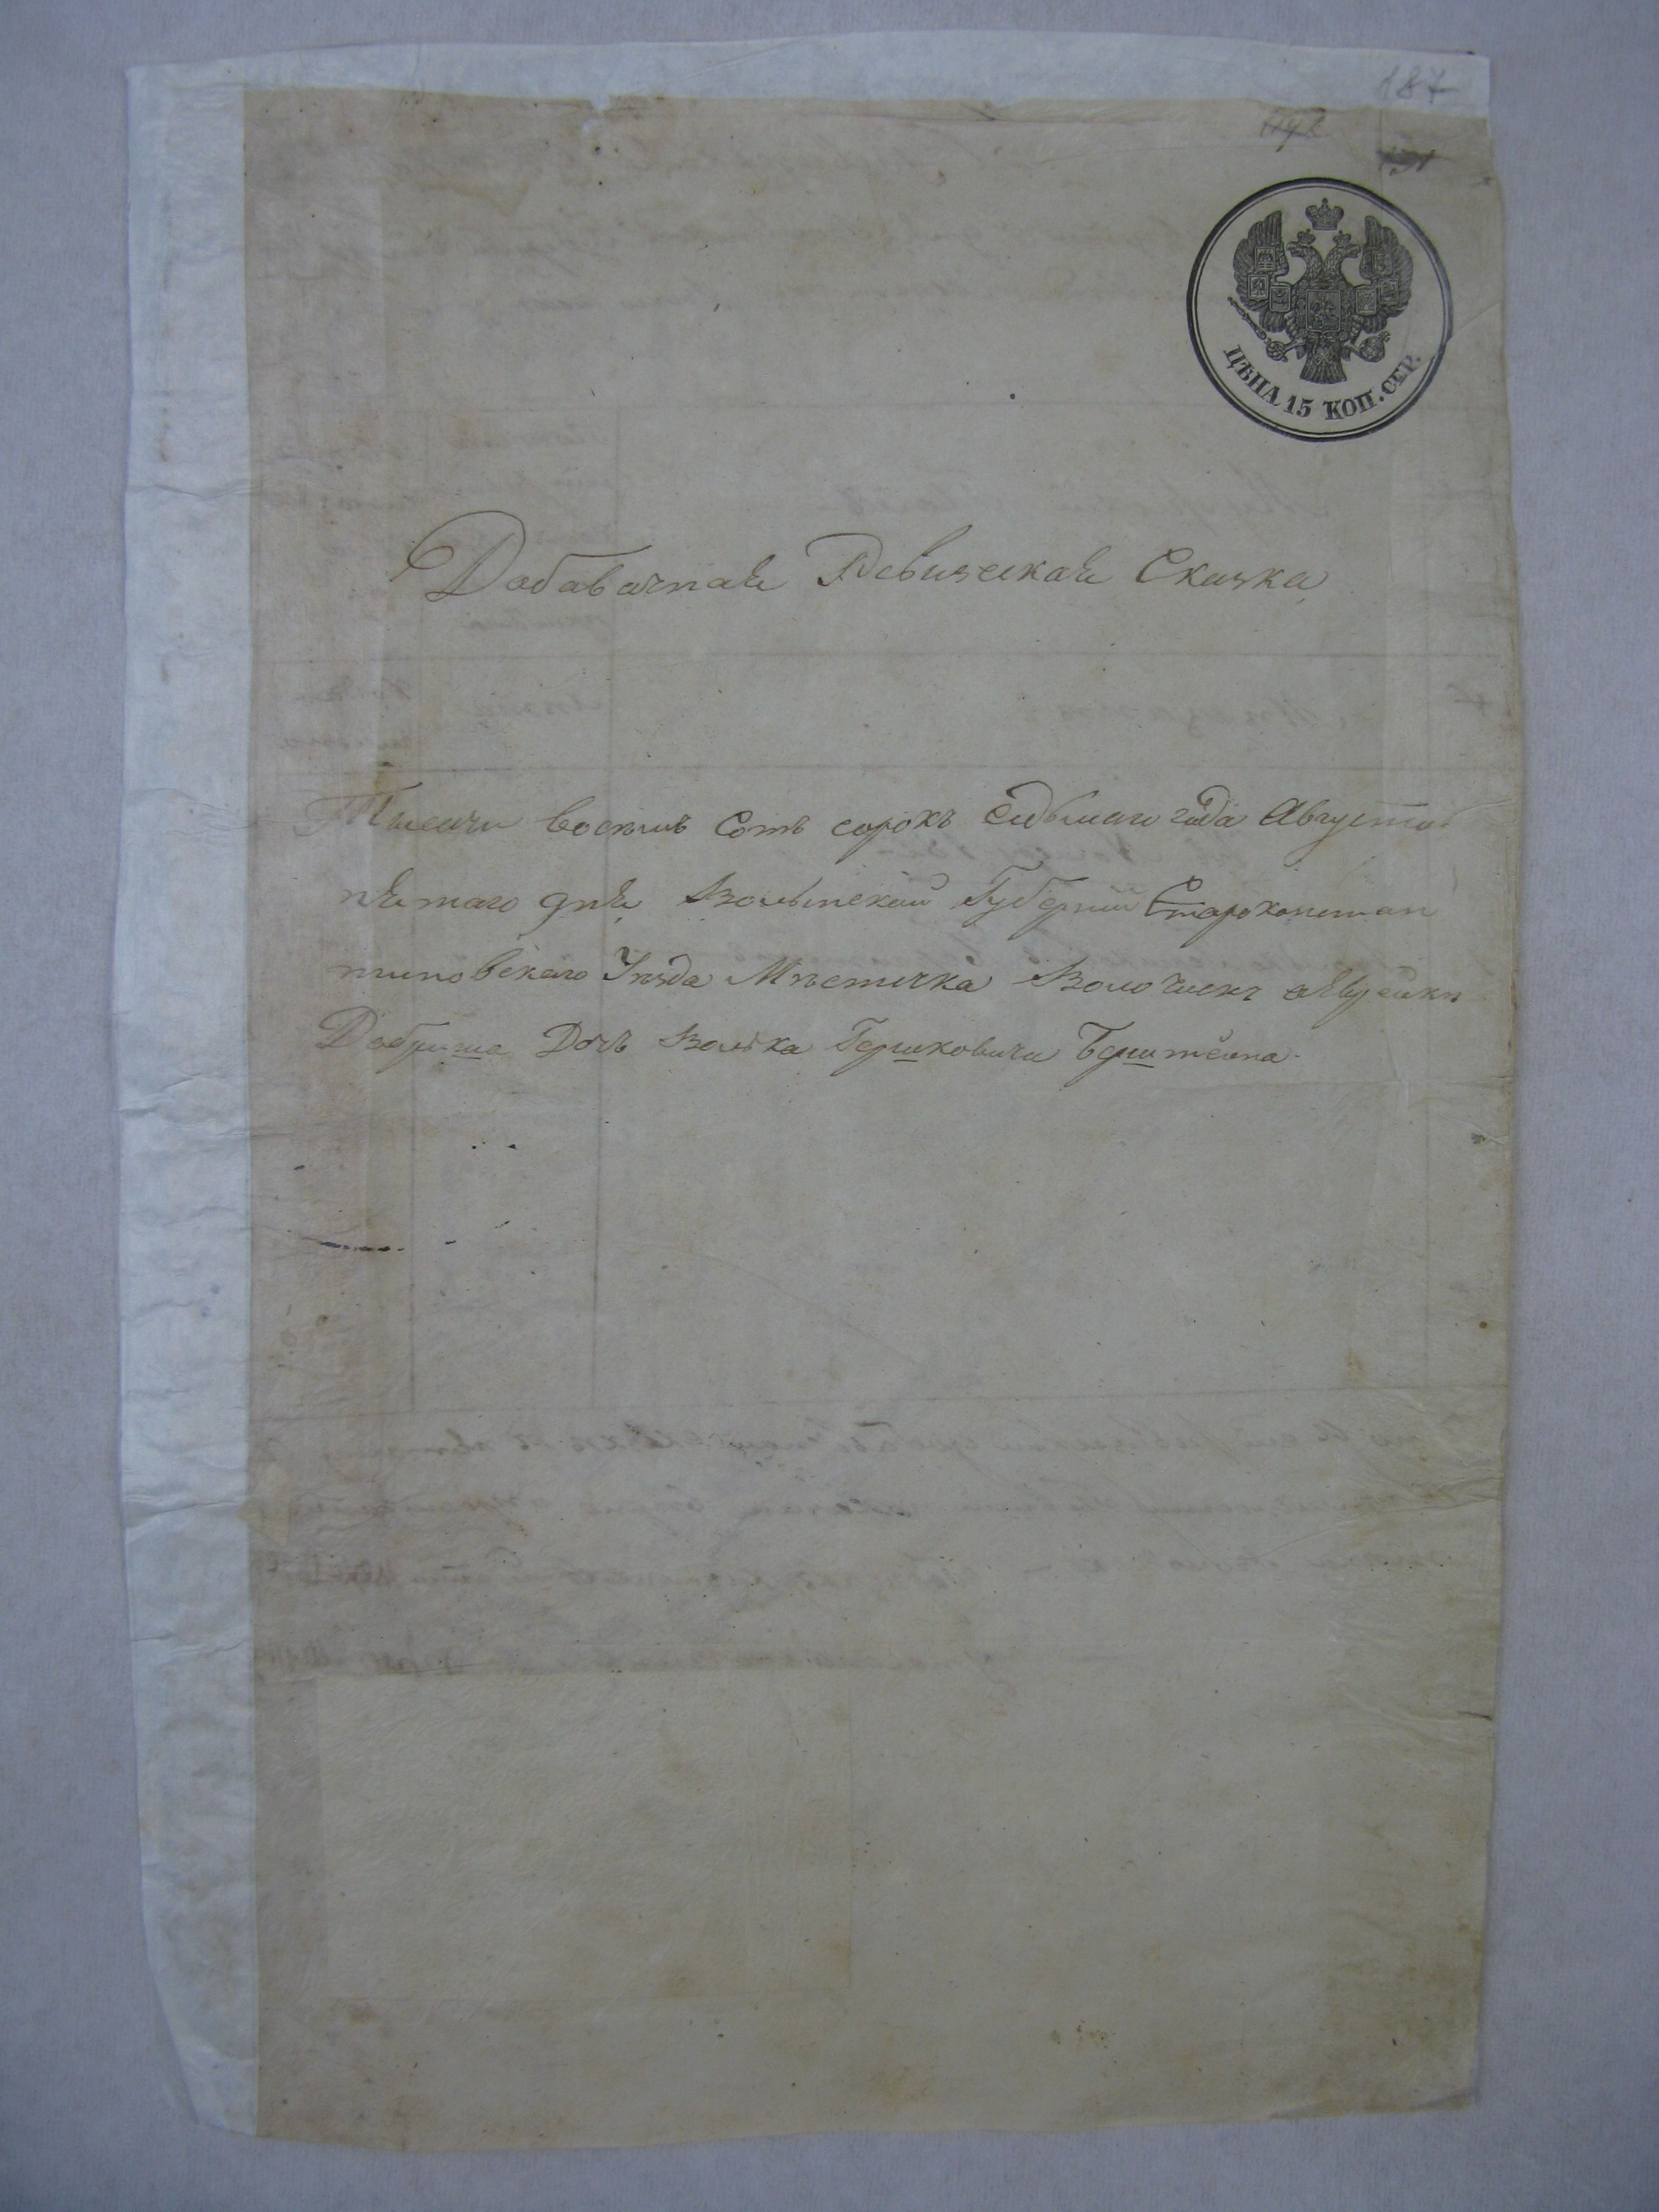 187
ЦѢНА 15 КОП. СЕР.
Добавочная Ревизская Скаска
Тысячи восемь сотъ сорокъ седьмаго года Августа
пятаго дня Волынской Губерніи Староконстан
тиновскаго Уѣзда Мѣстечка Волочискъ
Добриша Дочь Волька Гершковича Берштейна